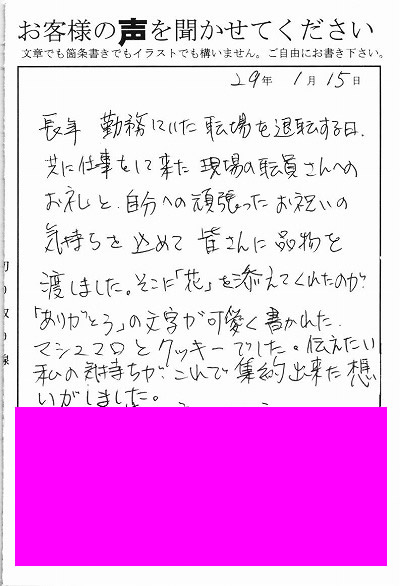 お客様の声を聞かせてください
文章でも箇条書きでもイラストでも構いません。ご自由にお書き下さい。
29年 1月 15日
長年 勤務していた 転場を退転する日、
共に仕事をして来た 現場の転員さんへの
お礼と、自分への頑張ったお祝いの
気持ちを込めて 皆さんに品物を
渡しました。そこに「花」を添えてくれたのが
「ありがとう」の文字が可愛く書かれた、
マシュマロとクッキーでした。伝えたい
私の気持ちが、これで集約出来た想
いがしました。